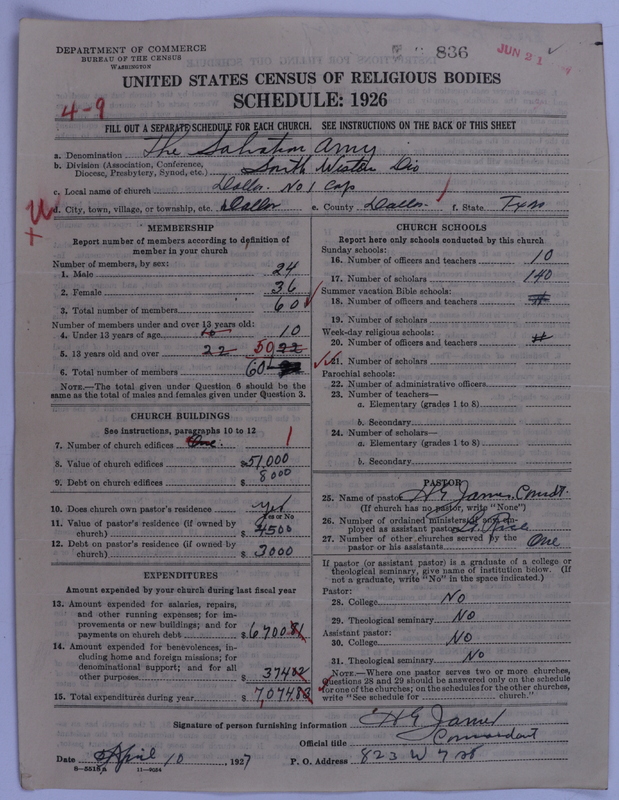 DEPARTMENT OF COMMERCE
BUREAU OF THE CENSUS
WASHINGTON
836
JUN 21
UNITED STATES CENSUS OF RELIGIOUS BODIES
SCHEDULE: 1926
4-9
FILL OUT A SEPARATE SCHEDULE FOR EACH CHURCH. SEE INSTRUCTIONS ON THE BACK OF THIS SHEET
a. Denomination The Salvation Army
b. Division (Association, Conference, Diocese, Presbytery, Synod, etc.) South Western Div
c. Local name of church Dallas. No 1 Corp
d. City, town, village, or township, etc. Dallas e. County Dallas. f. State Texas
MEMBERSHIP
Report number of members according to definition of
member in your church
Number of members, by sex:
1. Male 24
2. Female 36
3. Total number of members 60
Number of members under and over 13 years old:
4. Under 13 years of age 10 10
5. 13 years old and over 22 50 22
6. Total number of members 60
NOTE.—The total given under Question 6 should be the
same as the total of males and females given under Question 3.
CHURCH BUILDINGS
See instructions, paragraphs 10 to 12
7. Number of church edifices One. 1
8. Value of church edifices $51,000
9. Debt on church edifices $8000
10. Does church own pastor's residence yes
Yes or No
11. Value of pastor's residence (if owned by
church) $4500
12. Debt on pastor's residence (if owned by
church) $3000
EXPENDITURES
Amount expended by your church during last fiscal year
13. Amount expended for salaries, repairs,
and other running expenses; for im-
provements or new buildings; and for
payments on church debt $6700 81
14. Amount expended for benevolences, in-
cluding home and foreign missions; for
denominational support; and for all
other purposes $374 02
15. Total expenditures during year $7,074.83
CHURCH SCHOOLS
Report here only schools conducted by this church
Sunday schools:
16. Number of officers and teachers 10
17. Number of scholars 140
Summer vacation Bible schools:
18. Number of officers and teachers
19. Number of scholars
Week-day religious schools:
20. Number of officers and teachers
21. Number of scholars
Parochial schools:
22. Number of administrative officers
23. Number of teachers—
a. Elementary (grades 1 to 8)
b. Secondary
24. Number of scholars—
a. Elementary (grades 1 to 8)
b. Secondary
PASTOR
25. Name of pastor H E James, Comdt.
(If church has no pastor, write "None")
26. Number of ordained ministers, if any, em-
ployed as assistant pastor Rice
27. Number of other churches served by the
pastor or his assistants One
If pastor (or assistant pastor) is a graduate of a college or
theological seminary, give name of institution below. (If
not a graduate, write "No" in the space indicated.)
Pastor:
28. College No
29. Theological seminary No
Assistant pastor:
30. College No
31. Theological seminary No
NOTE.—Where one pastor serves two or more churches,
Questions 28 and 29 should be answered only on the schedule
for one of the churches; on the schedules for the other churches,
write "See schedule for church."
Signature of person furnishing information H E James
Official title Commandant
Date April 10, 1927 P. O. Address 823 W 7 St
8—5518a 11—9034